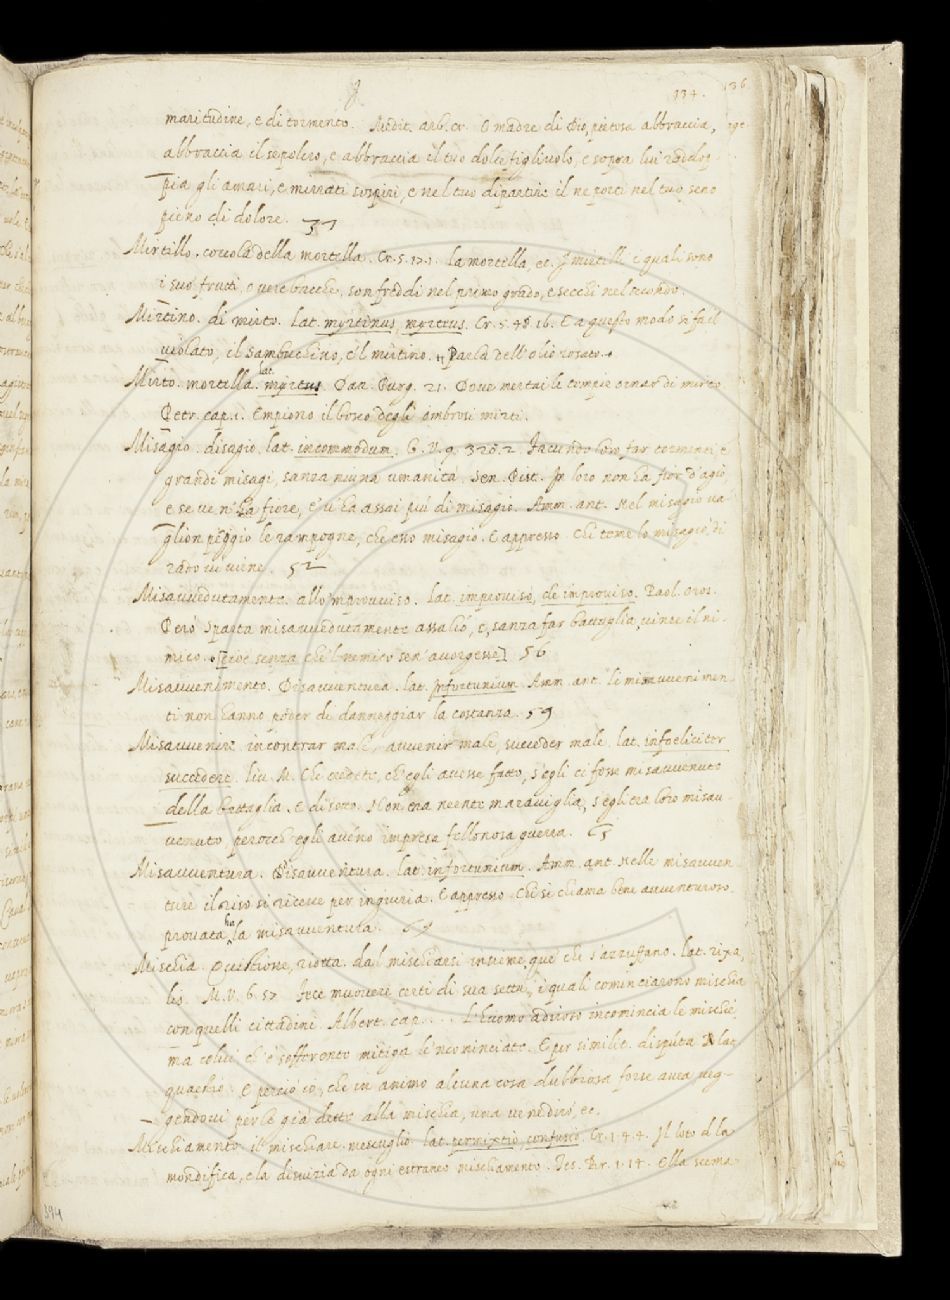 134. 136
maritudine, e di tormento. Medit. arb. cr. O madre di Dio, pietosa abbraccia,
abbraccia il sepolcro, e abbraccia il tuo dolce figliuolo, e sopra lui raddop
pia gli amari, e mirrati sospiri, e nel tuo dipartire il ne porti nel tuo seno
pieno di dolore. 37
Mirtillo. coccola della mortella. Cr. 5. 17. 1. la mortella, ec. I mirtilli i quali sono
i suo frutti, o vero bacche, son freddi nel primo grado, e secchi nel secondo.
Mirtino. di mirto. lat. myrtinus, myrteus. Cr. 5. 48. 16. E a questo modo si fa il
violato, il sambuchino, e'l mirtino. Parla dell'olio rosato.
Mirto. mortella. lat. myrtus. Dan. Purg. 21. Dove mertai le tempie ornar di mirto
Petr. cap. 1. Empiono il bosco degli ombrosi mirti.
Misagio. disagio. lat. incommodum. G. V. 9. 320. 2 Facendo loro far tormenti, e
grandi misagi, sanza niuna umanità. Sen. Pist. In loro non ha fior d'agio,
e se ve n'ha fiore, e' v'ha assai più di misagio. Amm. ant. Nel misagio va
glion peggio le rampogne, che esso misagio. E appresso. Chi teme lo misagio, di
rado vi viene. 52
Misavvedutamente. allo 'mprovviso. lat. improviso, de improviso. Paol. Oros.
Però Sparta misavvedutamente assalió, e, sanza far battaglia, vinse il ni
mico. [cioè senza che'l nemico sen'avvegesse] 56
Misavvenimento. Disavventura. lat. infortunium. Amm. ant. le misavvenimen
ti non hanno poder di danneggiar la costanza. 59
Misavvenire. incontrar male, avvenir male, succeder male. lat. infoeliciter
succedere. liv. M. Che credete, ch'egli avesse fatto, s'egli ci fosse misavvenuto
della battaglia. E di sotto. Non era neente maraviglia, s'egli era loro misau
venuto, perocch'egli aveno impresa fellonosa guerra. 65
Misavventura. Disavventura. lat. infortunium. Amm. ant. Nelle misavven
ture il riso si riceve per ingiuria. E appresso. Chi si chiama bene avventuroso
provata ha la misavventura.
Mischia. Quistione, riotta. dal mischiarsi insieme que' che s'azzuffano. lat. rixa,
lis. M. V. 6. 57. Fece muovere certi di sua setta, i quali cominciarono mischia
con quelli cittadini. Albert. cap. . . . L'huomo adiroso incomincia le mischie,
ma colui ch'è sofferente mitiga le 'ncominciate. E per similit. disputa lat.
quaestio. E perciò ciò, che in animo alcuna cosa dubbiosa forse avea neg-
gendovi per le già dette alla mischia, una ve ne dirò, ec.
Mischiamento. il mischiare. mescuglio. lat. permixtio, confusio. Cr. 1. 4. 4. Il loto ella
mondifica, e la divizia da ogni estraneo mischiamento. Tes. Br. 1. 14. Ella scema
194